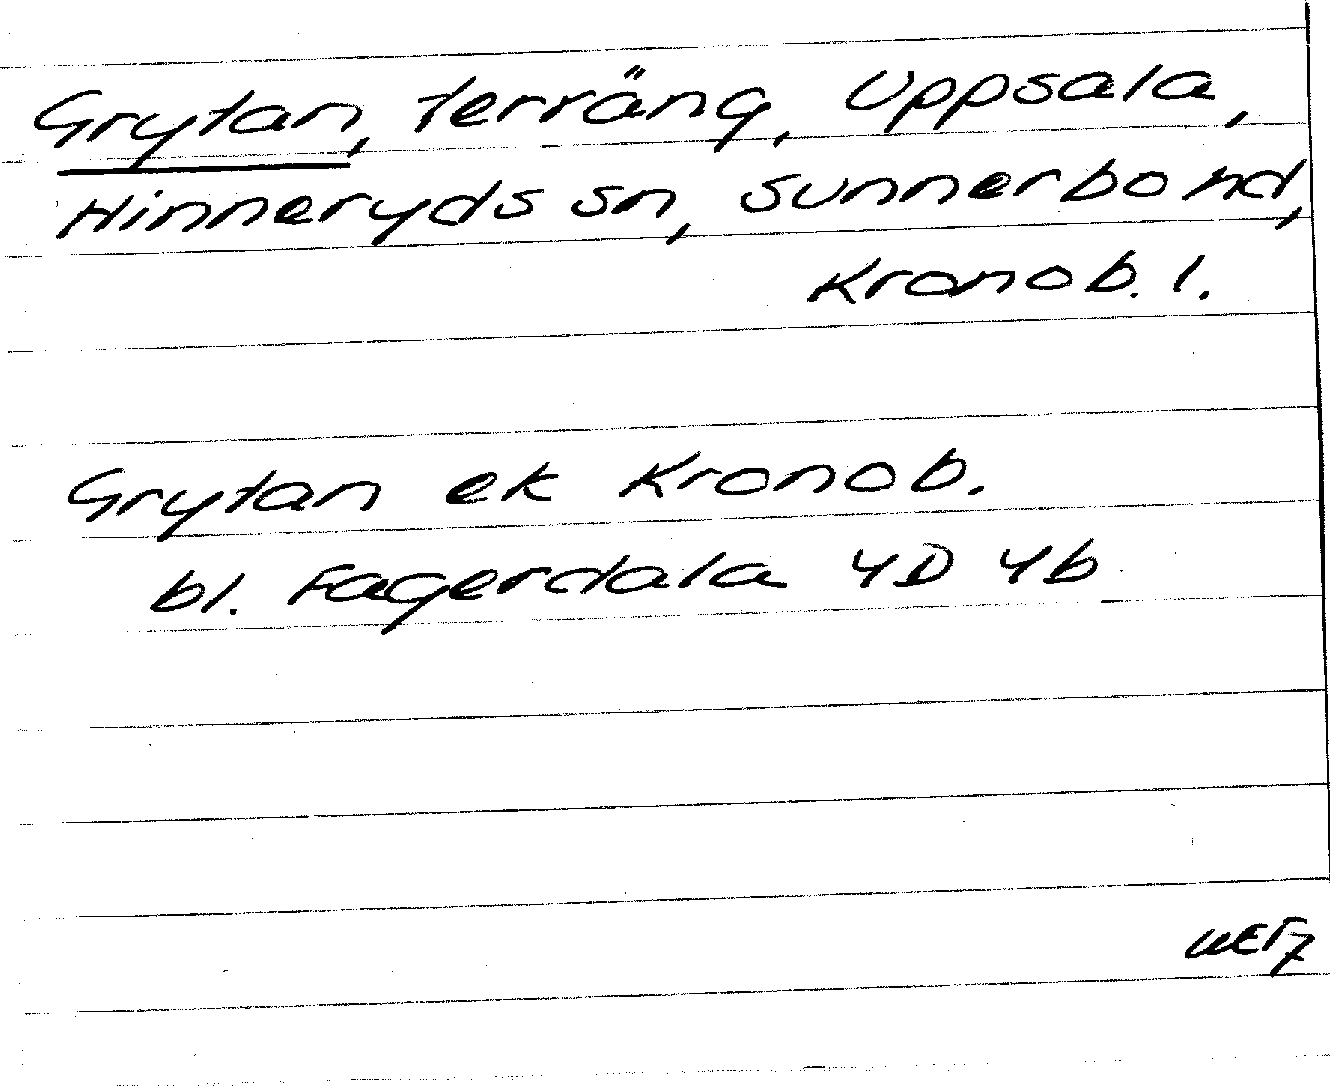 Grytan, terräng, Uppsala,
Hinneryds sn, Sunnerbo hd,
Kronob. l.
Grytan ek Kronob.
bl. Fagerdala 4D 4b